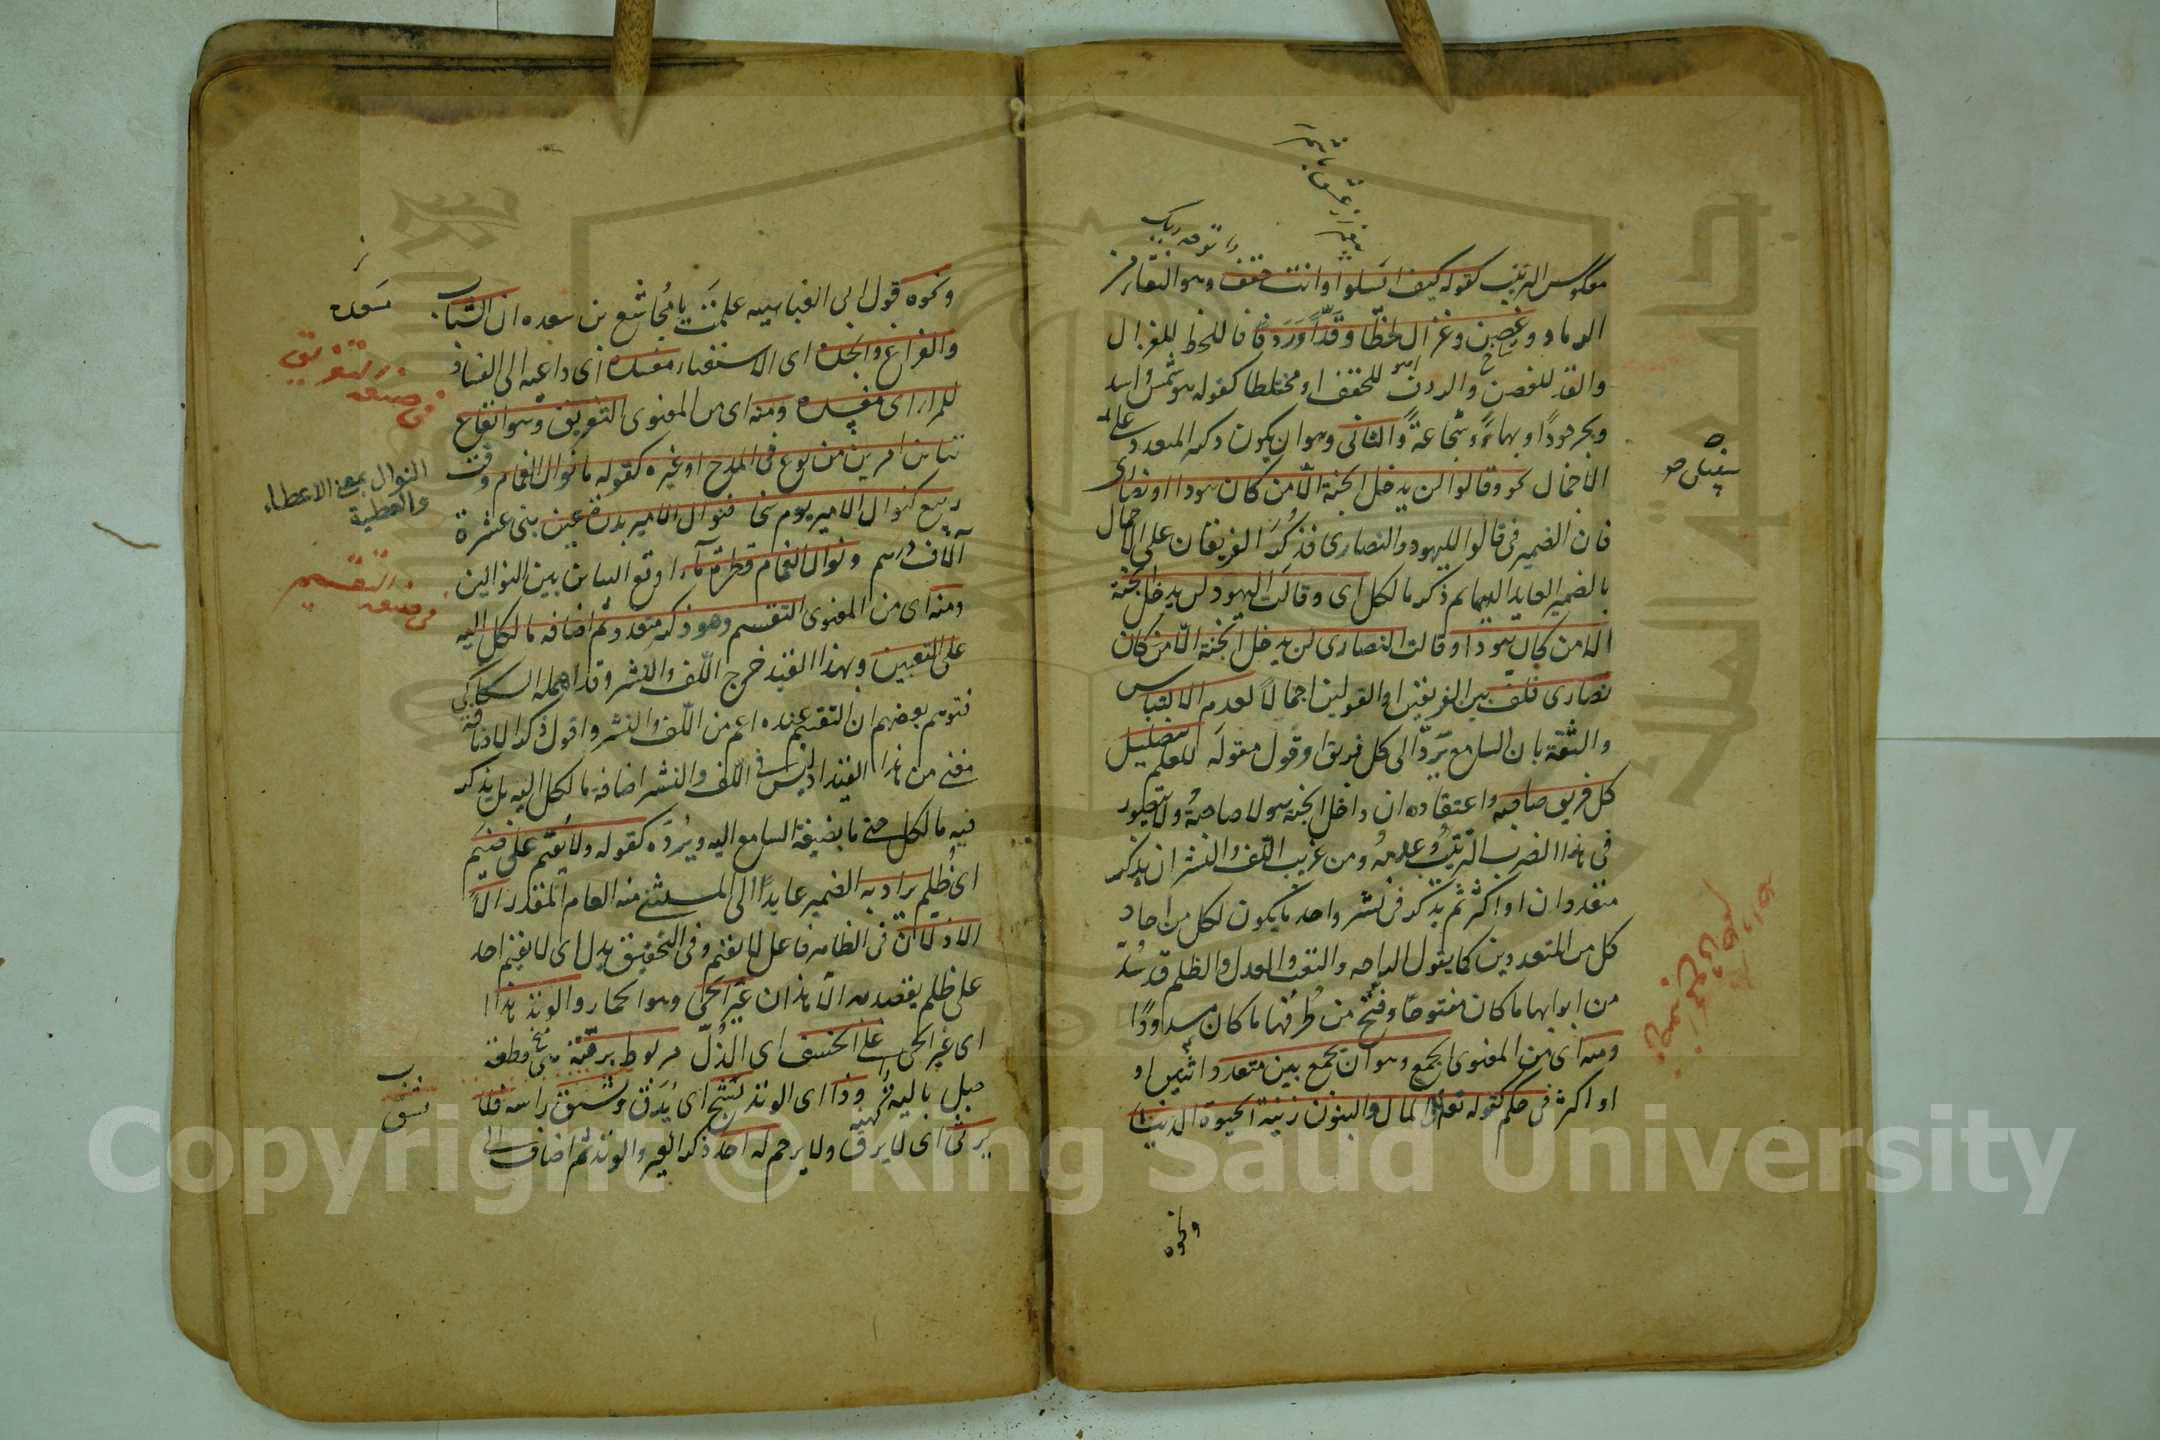 معكوس الترتيب كقوله كيف اسلو وانت حقف وهو النقاء من
الرماد وغصن وغزال لحظا وقدّا وردفا فاللحظ للغزال
والقد للغصن والردف للحقف او مختلطا كقوله هو شمس واسد
وبحر جودًا وبهاءً وشجاعةً والثانى وهو ان يكون ذكر المتعدد على
الاجمال نحو وقالوا لن يدخل الجنة الا من كان هودا او نصارى
فان الضمير فى قالوا لليهود والنصارى فذكر الفريقان على الاجمال
بالضمير العايد اليهما ثم ذكر ما لكل اى وقالت اليهود لن يدخل الجنة
الا من كان هودا وقالت النصارى لن يدخل الجنة الا من كان
نصارى فلف بين الفريقين او القولين اجمالا لعدم الالتباس
والثقة بان السامع يردّ الى كل فريق او قول مقوله للعلم بتضليل
كل فريق صاحبه واعتقاده ان داخل الجنة هو لا صاحبه ولا يتصور
فى هذا الضرب الترتيب وعدمه ومن غريب اللف والنشر ان يذكر
متعددان او اكثر ثم يذكر فى نشر واحد ما يكون لكل من احاد
كل من المتعددين كما يقول الراحه والتعب والعدل والظلم قد سُدّ
من ابوابها ما كان مفتوحا وفتح من طرقها ما كان مسدودًا
ومنه اى من المعنوى الجمع وهو ان يجمع بين متعدد اثنين او
او اكثر فى حكم كقوله تعالى المال والبنون زينة الحيوة الدنيا
ونحوه
سيفيكى صو
ونحوه قول ابى العتاهيه علمت يا مجاشع بن سعده ان الشباب
والفراغ والجده اى الاستغناء مفسده اى داعيه الى الفساد
للمراء اى مفسده ومنه اى من المعنوى التفريق وهو ايقاع
تباين امرين من نوع فى المدح او غيره كقوله ما نوال الغمام وقت
ربيع كنوال الامير يوم سخا فنوال الامير بدرة عين هى عشرة
آلاف درهم ونوال الغمام قطرة ماء اوقع التباين بين النوالين
ومنه اى من المعنوى التقسيم وهو ذكر متعدد ثم اضافة ما لكل اليه
على التعيين وبهذا القيد خرج اللف والنشر وقد اهمله السكاكى
فتوهم بعضهم ان التقسيم عنده اعم من اللف والنشر واقول ذكر الاضافة
مغنى من هذا القيد اذ ليس فى اللف والنشر اضافة ما لكل اليه بل يذكر
فيه ما لكل حتى ما يضيفه السامع اليه ويردّه كقوله ولا يقيم على ضيم
اى ظلم يراد به الضمير عايدًا الى المستثنى منه العام المقدر الا
الاذلان فى الظاهر فاعل لا يقيم وفى التحقيق بدل اى لا يقيم احد
على ظلم يقصد به الا هذان عير الحى وهو الحمار والوتد هذا
اى عير الحى على الخسف اى الذل مربوط برمته هى قطعة
حبل باليه وذا اى الوتد يشج اى يدق ويشق راسه فلا
يرثى اى لا يرق ولا يرحم له احد ذكر العير والوتد ثم اضاف الى
سعده
فى صنعة التفريق
النوال بمعنى الاعطاء
والعطية
فى صنعة التقسيم